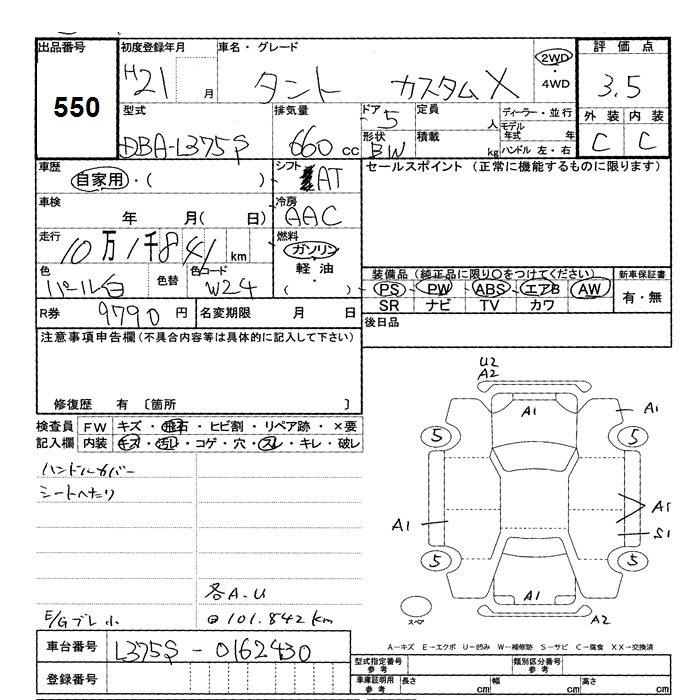 出品番号 初度登録年月 車名・グレード 評価点
550 H21 月 タント カスタムX 2WD ・ 4WD 3.5
型式 排気量 ドア 5 定員 人 ディーラー・並行 外装 内装
DBA-L375S 660 cc 形状 BW 積載 kg モデル年式 年 ハンドル 左・右 C C
車歴 自家用・( ) シフト AT セールスポイント (正常に機能するものに限ります)
車検 年 月( 日) 冷房 AAC
走行 10万1千841 km 燃料 ガソリン 軽油 ( )
色 パール白 色替 色コード W24 装備品(純正品に限り○をつけてください) 新車保証書
PS PW ABS エアB AW 有・無
SR ナビ TV カワ
R券 9790 円 名変期限 月 日 後日品
注意事項申告欄(不具合内容等は具体的に記入して下さい)
修復歴 有 〔箇所 〕
検査員 FW キズ・飛石・ヒビ割・リペア跡・×要
記入欄 内装 キズ・汚レ・コゲ・穴・スレ・キレ・破レ
ハンドルカバー
シートヘたり
各A.U
E/Gブレ小 101.842 km
U2
A2
A1 A1
5 5
A1 A1
S1
5 5
A1 A2
スペア
A-キズ E-エクボ U-凹み W-補修跡 S-サビ C-腐食 XX-交換済
車台番号 L375S - 0162430
登録番号
型式指定番号 参考 類別区分番号 参考
車庫証明用 参考 長さ cm 幅 cm 高さ cm